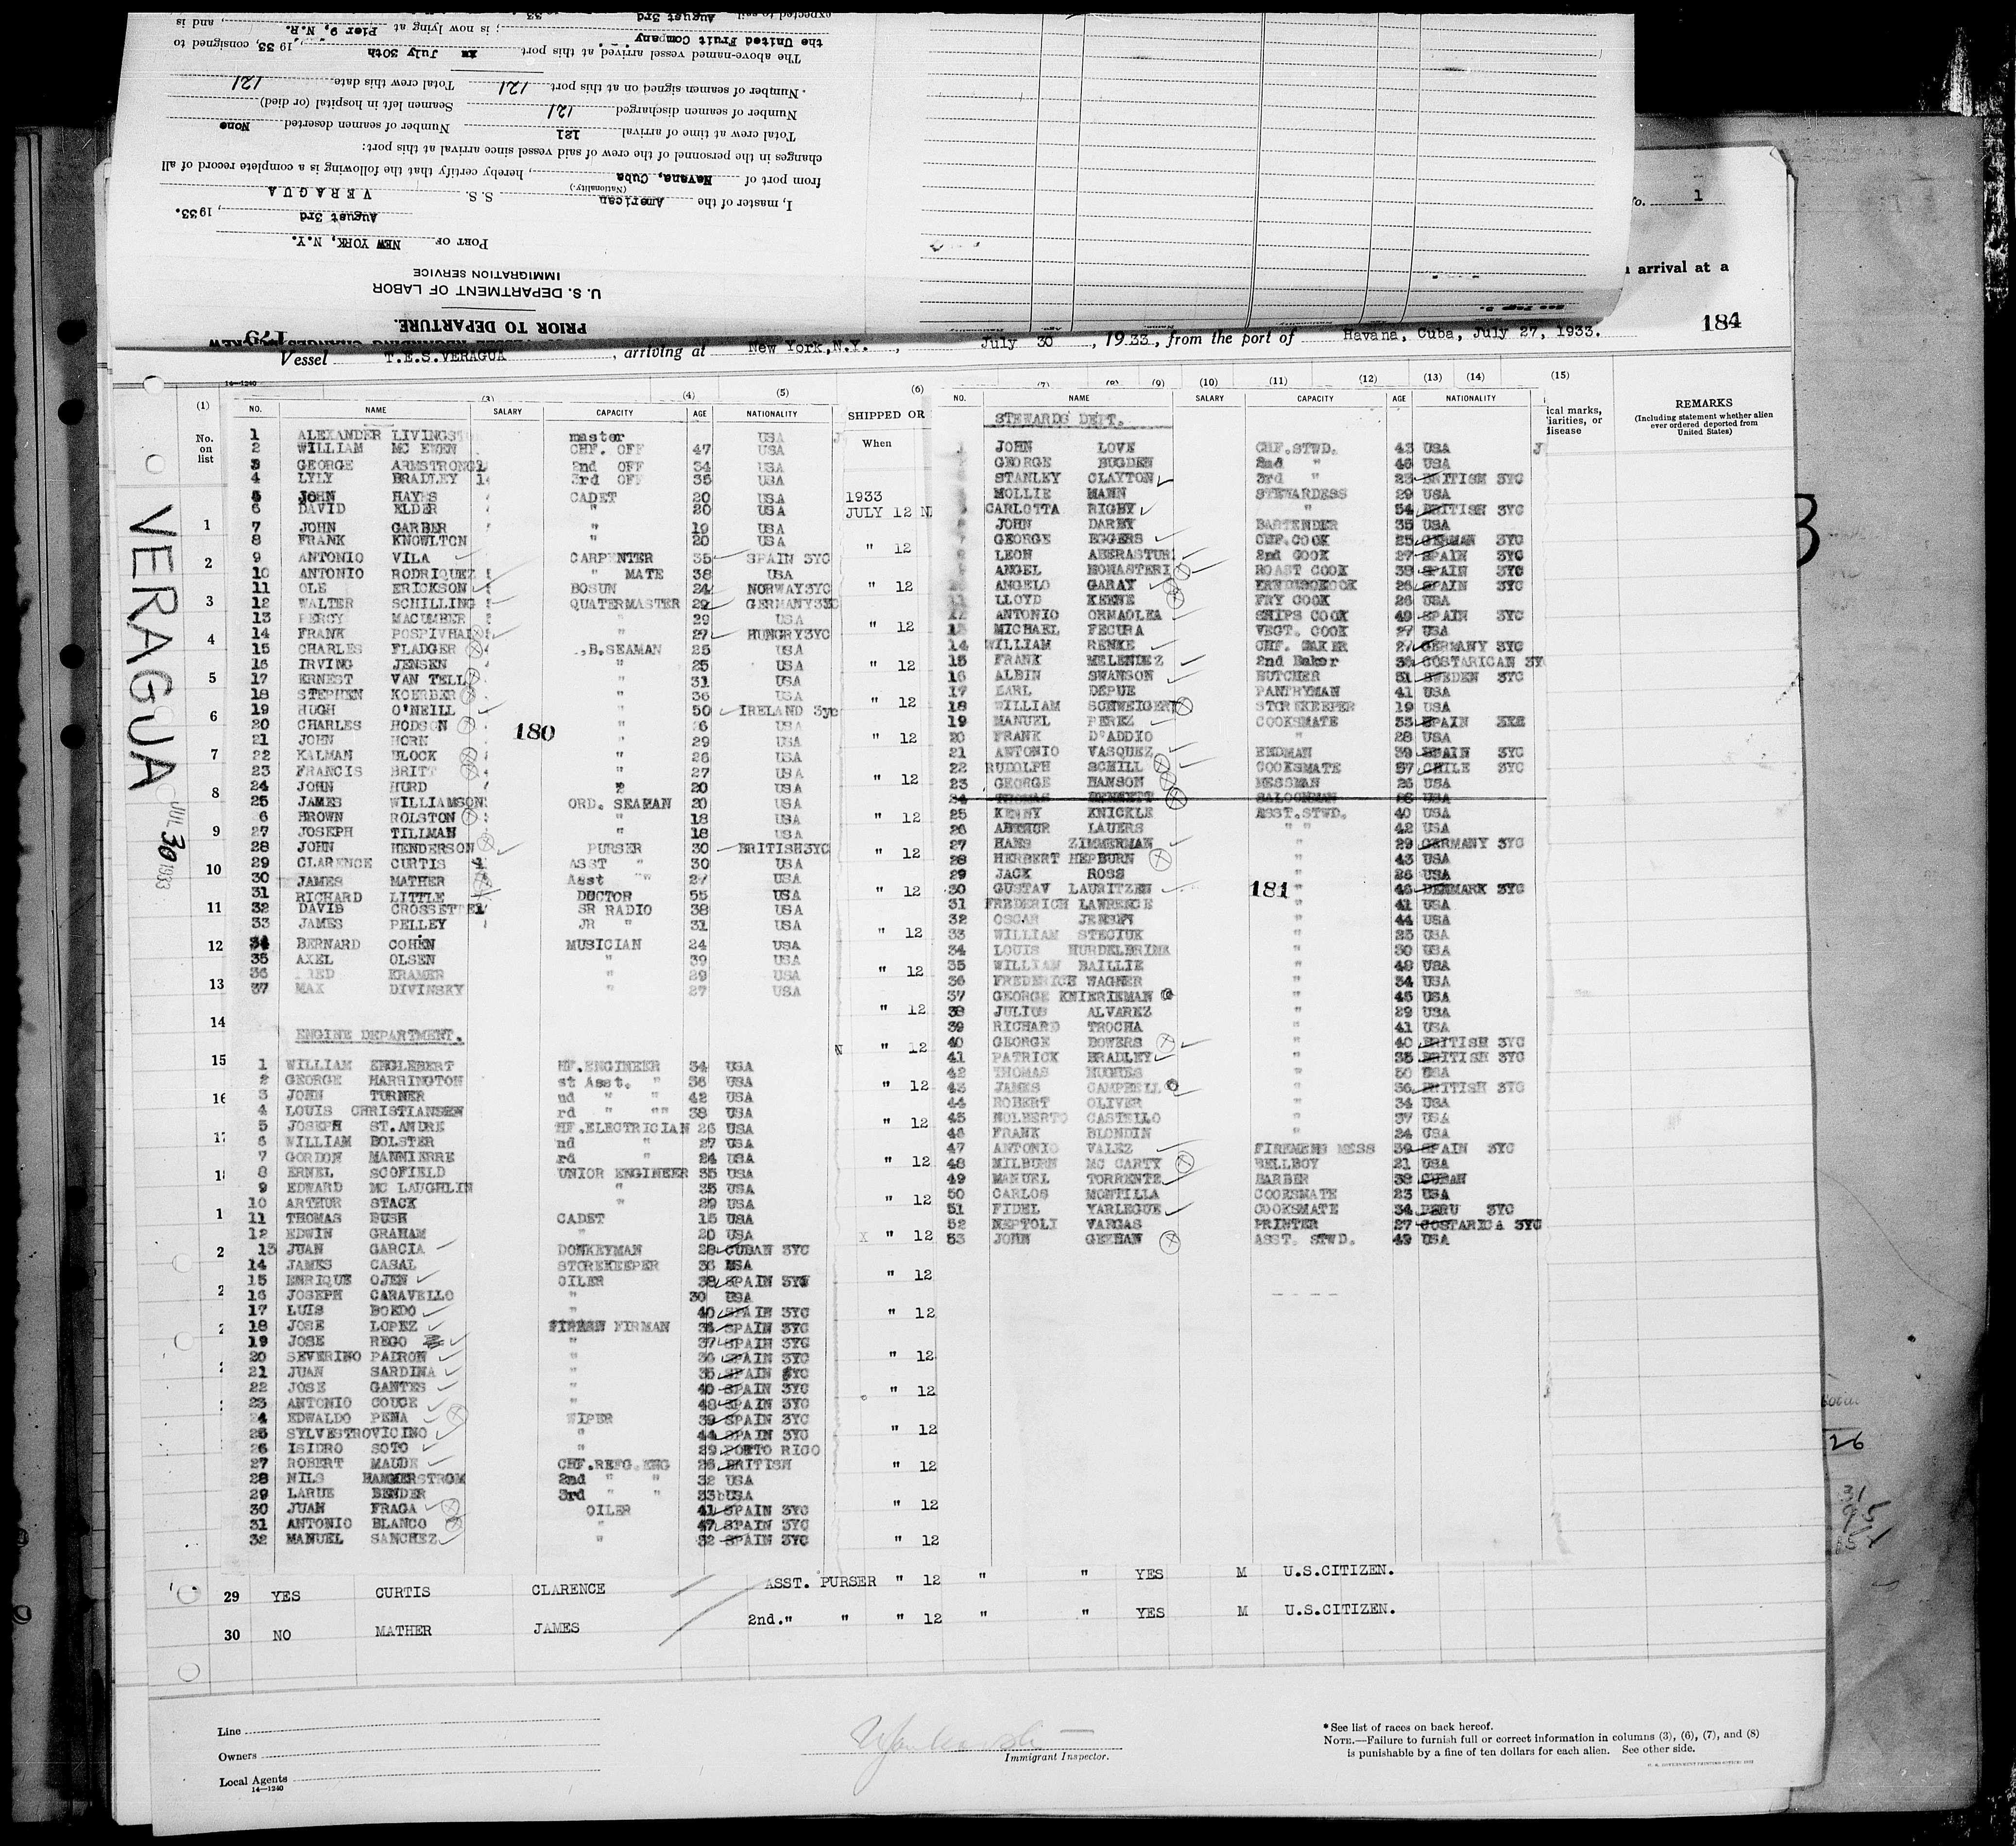 expected to sail August 3rd 33
the United Fruit Company ; is now lying at Pier 9, N.R. , and is
The above-named vessel arrived at this port July 30th , 1933, consigned to
Number of seamen signed on at this port 121 Total crew this date 121
Number of seamen discharged 121 Seamen left in hospital (or died)
Total crew at time of arrival 121 Number of seamen deserted None
changes in the personnel of the crew of said vessel since arrival at this port:
from port of Havana, Cuba , hereby certify that the following is a complete record of all
(Nationality.)
I, master of the American S. S. VERAGUA
August 3rd , 1933.
PORT OF NEW YORK, N.Y.
IMMIGRATION SERVICE
U. S. DEPARTMENT OF LABOR
PRIOR TO DEPARTURE.
179
No. 1
arrival at a
184
Vessel T.E.S.VERAGUA , arriving at New York,N.Y. , July 30 , 1933, from the port of Havana, Cuba, July 27, 1933.
14—1240
(1) (3) (4) (5) (6) (7) (8) (9) (10) (11) (12) (13) (14) (15)
No. on list
NO. NAME SALARY CAPACITY AGE NATIONALITY
SHIPPED OR
When
1933
JULY 12
NO. NAME SALARY CAPACITY AGE NATIONALITY
ical marks,
iarities, or
disease
REMARKS
(Including statement whether alien
ever ordered deported from
United States)
VERAGUA
JUL 30 1933
1 ALEXANDER LIVINGST master USA
2 WILLIAM MC EWEN CHF. OFF 47 USA
3 GEORGE ARMSTRONG 2nd OFF 34 USA
4 LYLY BRADLEY 3rd OFF 35 USA
5 JOHN HAYES CADET 20 USA
6 DAVID ELDER " 20 USA
7 JOHN GARBER " 19 USA
8 FRANK KNOWLTON " 20 USA
9 ANTONIO VILA CARPENTER 35 SPAIN 3YC
10 ANTONIO RODRIQUEZ " MATE 38 USA
11 OLE ERICKSON BOSUN 24 NORWAY3YC
12 WALTER SCHILLING QUATERMASTER 29 GERMANY3YC
13 PERCY MACUMBER " 29 USA
14 FRANK POSPIVHAL " 27 HUNGRY3YC
15 CHARLES FLADGER .,B.SEAMAN 25 USA
16 IRVING JENSEN " 25 USA
17 ERNEST VAN TELL " 31 USA
18 STEPHEN KOERBER " 36 USA
19 HUGH O'NEILL " 50 IRELAND 3yc
20 CHARLES HODSON " 26 USA
180
21 JOHN HORN " 29 USA
22 KALMAN BLOCK " 26 USA
23 FRANCIS BRITT " 27 USA
24 JOHN HURD " 20 USA
25 JAMES WILLIAMSON ORD. SEAMAN 20 USA
6 BROWN ROLSTON " 18 USA
27 JOSEPH TILLMAN " 18 USA
28 JOHN HENDERSON PURSER 30 BRITISH3YC
29 CLARENCE CURTIS ASST " 30 USA
30 JAMES MATHER Asst "" 27 USA
31 RICHARD LITTLE DOCTOR 55 USA
32 DAVID CROSSETTE SR RADIO 38 USA
33 JAMES PELLEY JR " 31 USA
34 BERNARD COHEN MUSICIAN 24 USA
35 AXEL OLSEN " 39 USA
36 RED KRAMER " 29 USA
37 MAX DIVINSKY " 27 USA
ENGINE DEPARTMENT.
1 WILLIAM ENGLEBERT HF.ENGINEER 34 USA
2 GEORGE HARRINGTON st Asst. " 36 USA
3 JOHN TURNER nd " " 42 USA
4 LOUIS CHRISTIANSEN rd " "" 38 USA
5 JOSEPH ST.ANDRE HF.ELECTRICIAN 26 USA
6 WILLIAM BOLSTER nd " 27 USA
7 GORDON MANNIERRE rd " 24 USA
8 ERNEL SCOFIELD UNIOR ENGINEER 35 USA
9 EDWARD MC LAUGHLIN " 35 USA
10 ARTHUR STACK " 29 USA
11 THOMAS BUSH CADET 15 USA
12 EDWIN GRAHAM " 20 USA
13 JUAN GARCIA DONKEYMAN 28 CUBAN 3YC
14 JAMES CASAL STOREKEEPER 36 USA
15 ENRIQUE OJEN OILER 38 SPAIN 3YC
16 JOSEPH CARAVELLO " 30 USA
17 LUIS BOEDO " 40 SPAIN 3YC
18 JOSE LOPEZ FIRMAN 36 SPAIN 3YC
19 JOSE REGO " 37 SPAIN 3YC
20 SEVERINO PADRON " 36 SPAIN 3YC
21 JUAN SARDINA " 35 SPAIN 3YC
22 JOSE GANTES " 40 SPAIN 3YC
23 ANTONIO COUCE " 48 SPAIN 3YC
24 EDWALDO PENA WIPER 39 SPAIN 3YC
25 SYLVESTROVICINO " 44 SPAIN 3YC
26 ISIDRO SOTO " 29 PORTO RICO
27 ROBERT MAUDE CHF.REFG.ENG 26 BRITISH
28 NILS HAMMERSTROM 2nd " " 32 USA
29 LARUE BENDER 3rd " " 33 USA
30 JUAN FRAGA OILER 41 SPAIN 3YC
31 ANTONIO BLANCO " 47 SPAIN 3YC
32 MANUEL SANCHEZ " 32 SPAIN 3YC
STEWARDS DEPT.
1 JOHN LOVE CHF.STWD. 43 USA
GEORGE BUGDEN 2nd " 46 USA
STANLEY CLAYTON 3rd " 23 BRITISH 3YC
MOLLIE MANN STEWARDESS 29 USA
CARLOTTA RIGBY " 54 BRITISH 3YC
JOHN DARBY BARTENDER 35 USA
GEORGE EGGERS CHF.COOK 25 GERMAN 3YC
LEON ABERASTUR 2nd COOK 27 SPAIN 3YC
ANGEL MONASTERI ROAST COOK 38 SPAIN 3YC
ANGELO GARAY 26 SPAIN 3YC
11 LLOYD KEENE FRY COOK 26 USA
12 ANTONIO ORMAOLEA SHIPS COOK 49 SPAIN 3YC
13 MICHAEL FECURA VEGT. COOK 27 USA
14 WILLIAM RENKE CHF. BAKER 27 GERMANY 3YC
15 FRANK MELENDEZ 2nd Baker 38 COSTARICAN 3Y
16 ALBIN SWANSON BUTCHER 51 SWEDEN 3YC
17 EARL DEPUE PANTRYMAN 41 USA
18 WILLIAM SCHWEIGERT STOREKEEPER 19 USA
19 MANUEL PEREZ COOKSMATE 33 SPAIN
20 FRANK D'ADDIO " 28 USA
21 ANTONIO VASQUEZ 39 SPAIN 3YC
22 RUDOLPH SCHILL COOKSMATE 57 CHILE 3YC
23 GEORGE HANSON MESSMAN 26 USA
24 THOMAS BENNETT SALOONMAN 26 USA
25 KENNY KNICKLE ASST.STWD. 40 USA
26 ARTHUR LAUERS " " 42 USA
27 HANS ZIMMERMAN " 29 GERMANY 3YC
28 HERBERT HEPBURN " 43 USA
29 JACK ROSS " 26 USA
30 GUSTAV LAURITZEN 181 " 46 DENMARK 3YC
31 FREDERICH LAWRENCE " 41 USA
32 OSCAR JENSEN " 44 USA
33 WILLIAM STECIUK " 23 USA
34 LOUIS HURDELBRINK " 30 USA
35 WILLIAM BAILLIE " 48 USA
36 FREDERICH WAGNER " 34 USA
37 GEORGE KNIERIKMAN " 45 USA
38 JULIUS ALVAREZ " 29 USA
39 RICHARD TROCHA " 41 USA
40 GEORGE BOWERS " 40 BRITISH 3YC
41 PATRICK BRADLEY " 35 BRITISH 3YC
42 THOMAS HUGHES " 50 USA
43 JAMES CAMPBELL " 36 BRITISH 3YC
44 ROBERT OLIVER " 34 USA
45 NOLBERTO CASTELLO " 37 USA
46 FRANK BLONDIN " 24 USA
47 ANTONIO VALEZ FIREMENS MESS 39 SPAIN 3YC
48 MILBURN MC CARTY BELLBOY 21 USA
49 MANUEL TORRENTE BARBER 38 CUBAN
50 CARLOS MONTILLA COOKSMATE 23 USA
51 FIDEL YARLEGUE COOKSMATE 34 PERU 3YC
52 NEPTOLI VARGAS PRINTER 27 COSTARICA 3YC
53 JOHN GEEHAN ASST. STWD. 49 USA
29 YES CURTIS CLARENCE ASST. PURSER " 12 " " YES M U.S.CITIZEN.
30 NO MATHER JAMES 2nd." " " 12 " " YES M U.S.CITIZEN.
Line
Owners
Local Agents
14—1240
Immigrant Inspector.
* See list of races on back hereof.
NOTE.—Failure to furnish full or correct information in columns (3), (6), (7), and (8)
is punishable by a fine of ten dollars for each alien. See other side.